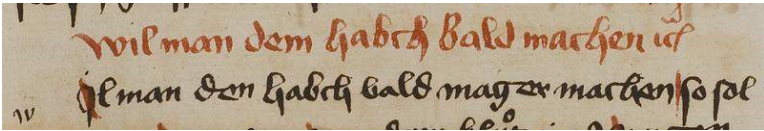 wil man dem habch bald machen
w
il man den habch bald mager machen so sol